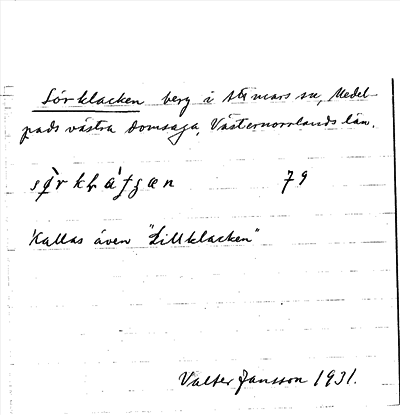 Sörklacken berg i Attmars sn, Medel-
pads västra domsaga, Västernorrlands län.
79
Kallas även "Lillklacken"
Valter Jansson 1931.